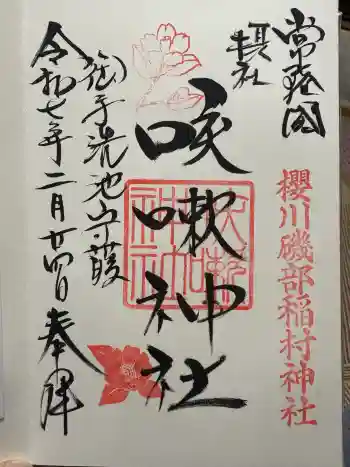 常陸國
摂社
櫻川磯部稲村神社
咳嗽神社
咳嗽神社
御手洗池守護
令和七年二月廿四日奉拝